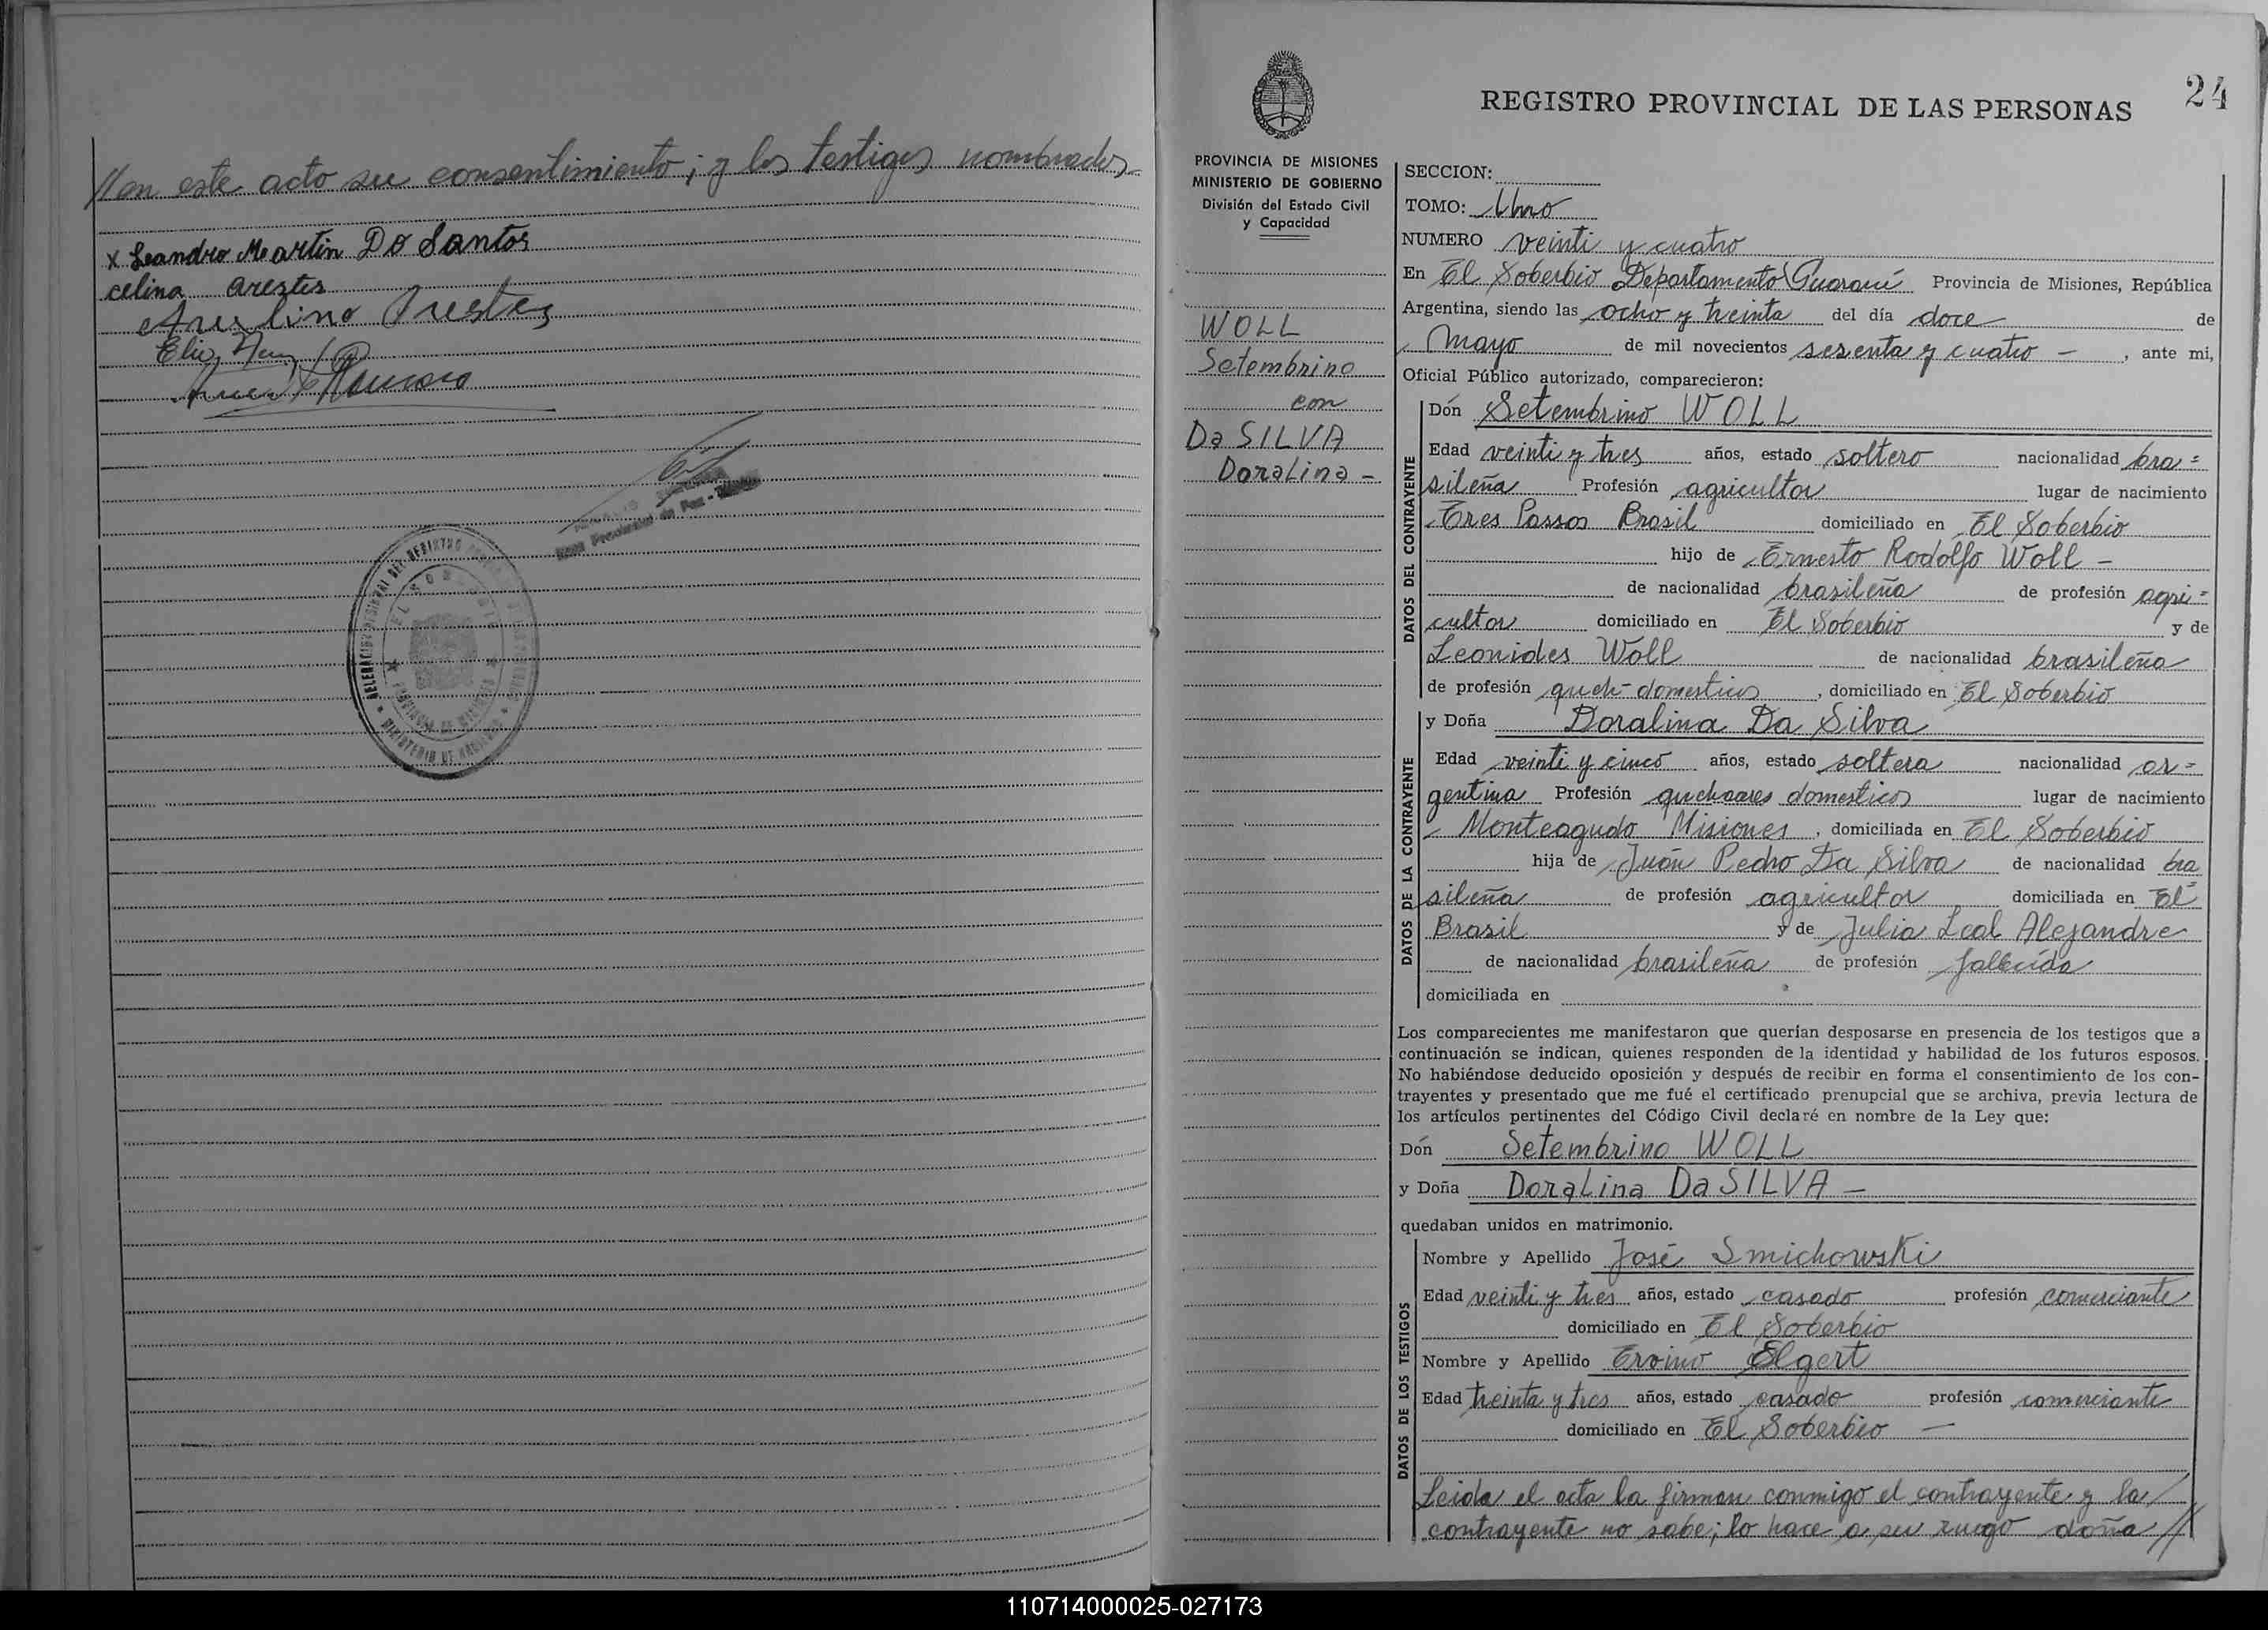 //en este acto su consentimiento; y los testigos nombrados
x Leandro Martin Do Santos
celina arestes
Elio
DELEGACION
EL SOBERBIO
PROVINCIA DE MISIONES
24
REGISTRO PROVINCIAL DE LAS PERSONAS
PROVINCIA DE MISIONES
MINISTERIO DE GOBIERNO
División del Estado Civil
y Capacidad
WOLL
Setembrino
con
Da SILVA
Doralina -
SECCION:
TOMO: Uno
NUMERO veinti y cuatro
En El Soberbio Departamento Guaraní Provincia de Misiones, República
Argentina, siendo las ocho y treinta del día doce de
Mayo de mil novecientos sesenta y cuatro - , ante mi,
Oficial Público autorizado, comparecieron:
DATOS DEL CONTRAYENTE
Dón Setembrino WOLL
Edad veinti y tres años, estado soltero nacionalidad bra=
sileña Profesión agricultor lugar de nacimiento
Tres Passos Brasil domiciliado en El Soberbio
hijo de Ernesto Rodolfo Woll -
de nacionalidad brasileña de profesión agri=
cultor domiciliado en El Soberbio y de
Leonides Woll de nacionalidad brasileña
de profesión queh- domesticos , domiciliado en El Soberbio
DATOS DE LA CONTRAYENTE
y Doña Doralina Da Silva
Edad veinti y cinco años, estado soltera nacionalidad ar=
gentina Profesión quehaceres domesticos lugar de nacimiento
Monteagudo Misiones , domiciliada en El Soberbio
hija de Juan Pedro Da Silva de nacionalidad bra
sileña de profesión agricultor domiciliada en El
Brasil y de Julia Leal Alejandre
de nacionalidad brasileña de profesión fallecida
domiciliada en
Los comparecientes me manifestaron que querían desposarse en presencia de los testigos que a
continuación se indican, quienes responden de la identidad y habilidad de los futuros esposos.
No habiéndose deducido oposición y después de recibir en forma el consentimiento de los con-
trayentes y presentado que me fué el certificado prenupcial que se archiva, previa lectura de
los artículos pertinentes del Código Civil declaré en nombre de la Ley que:
Dón Setembrino WOLL
y Doña Doralina Da SILVA -
quedaban unidos en matrimonio.
DATOS DE LOS TESTIGOS
Nombre y Apellido José Smichowski
Edad veinti y tres años, estado casado profesión comerciante
domiciliado en El Soberbio
Nombre y Apellido Ervino Elgert
Edad treinta y tres años, estado casado profesión comerciante
domiciliado en El Soberbio -
Leida el acta la firman conmigo el contrayente y la
contrayente no sabe; lo hace a su ruego doña //
110714000025-027173